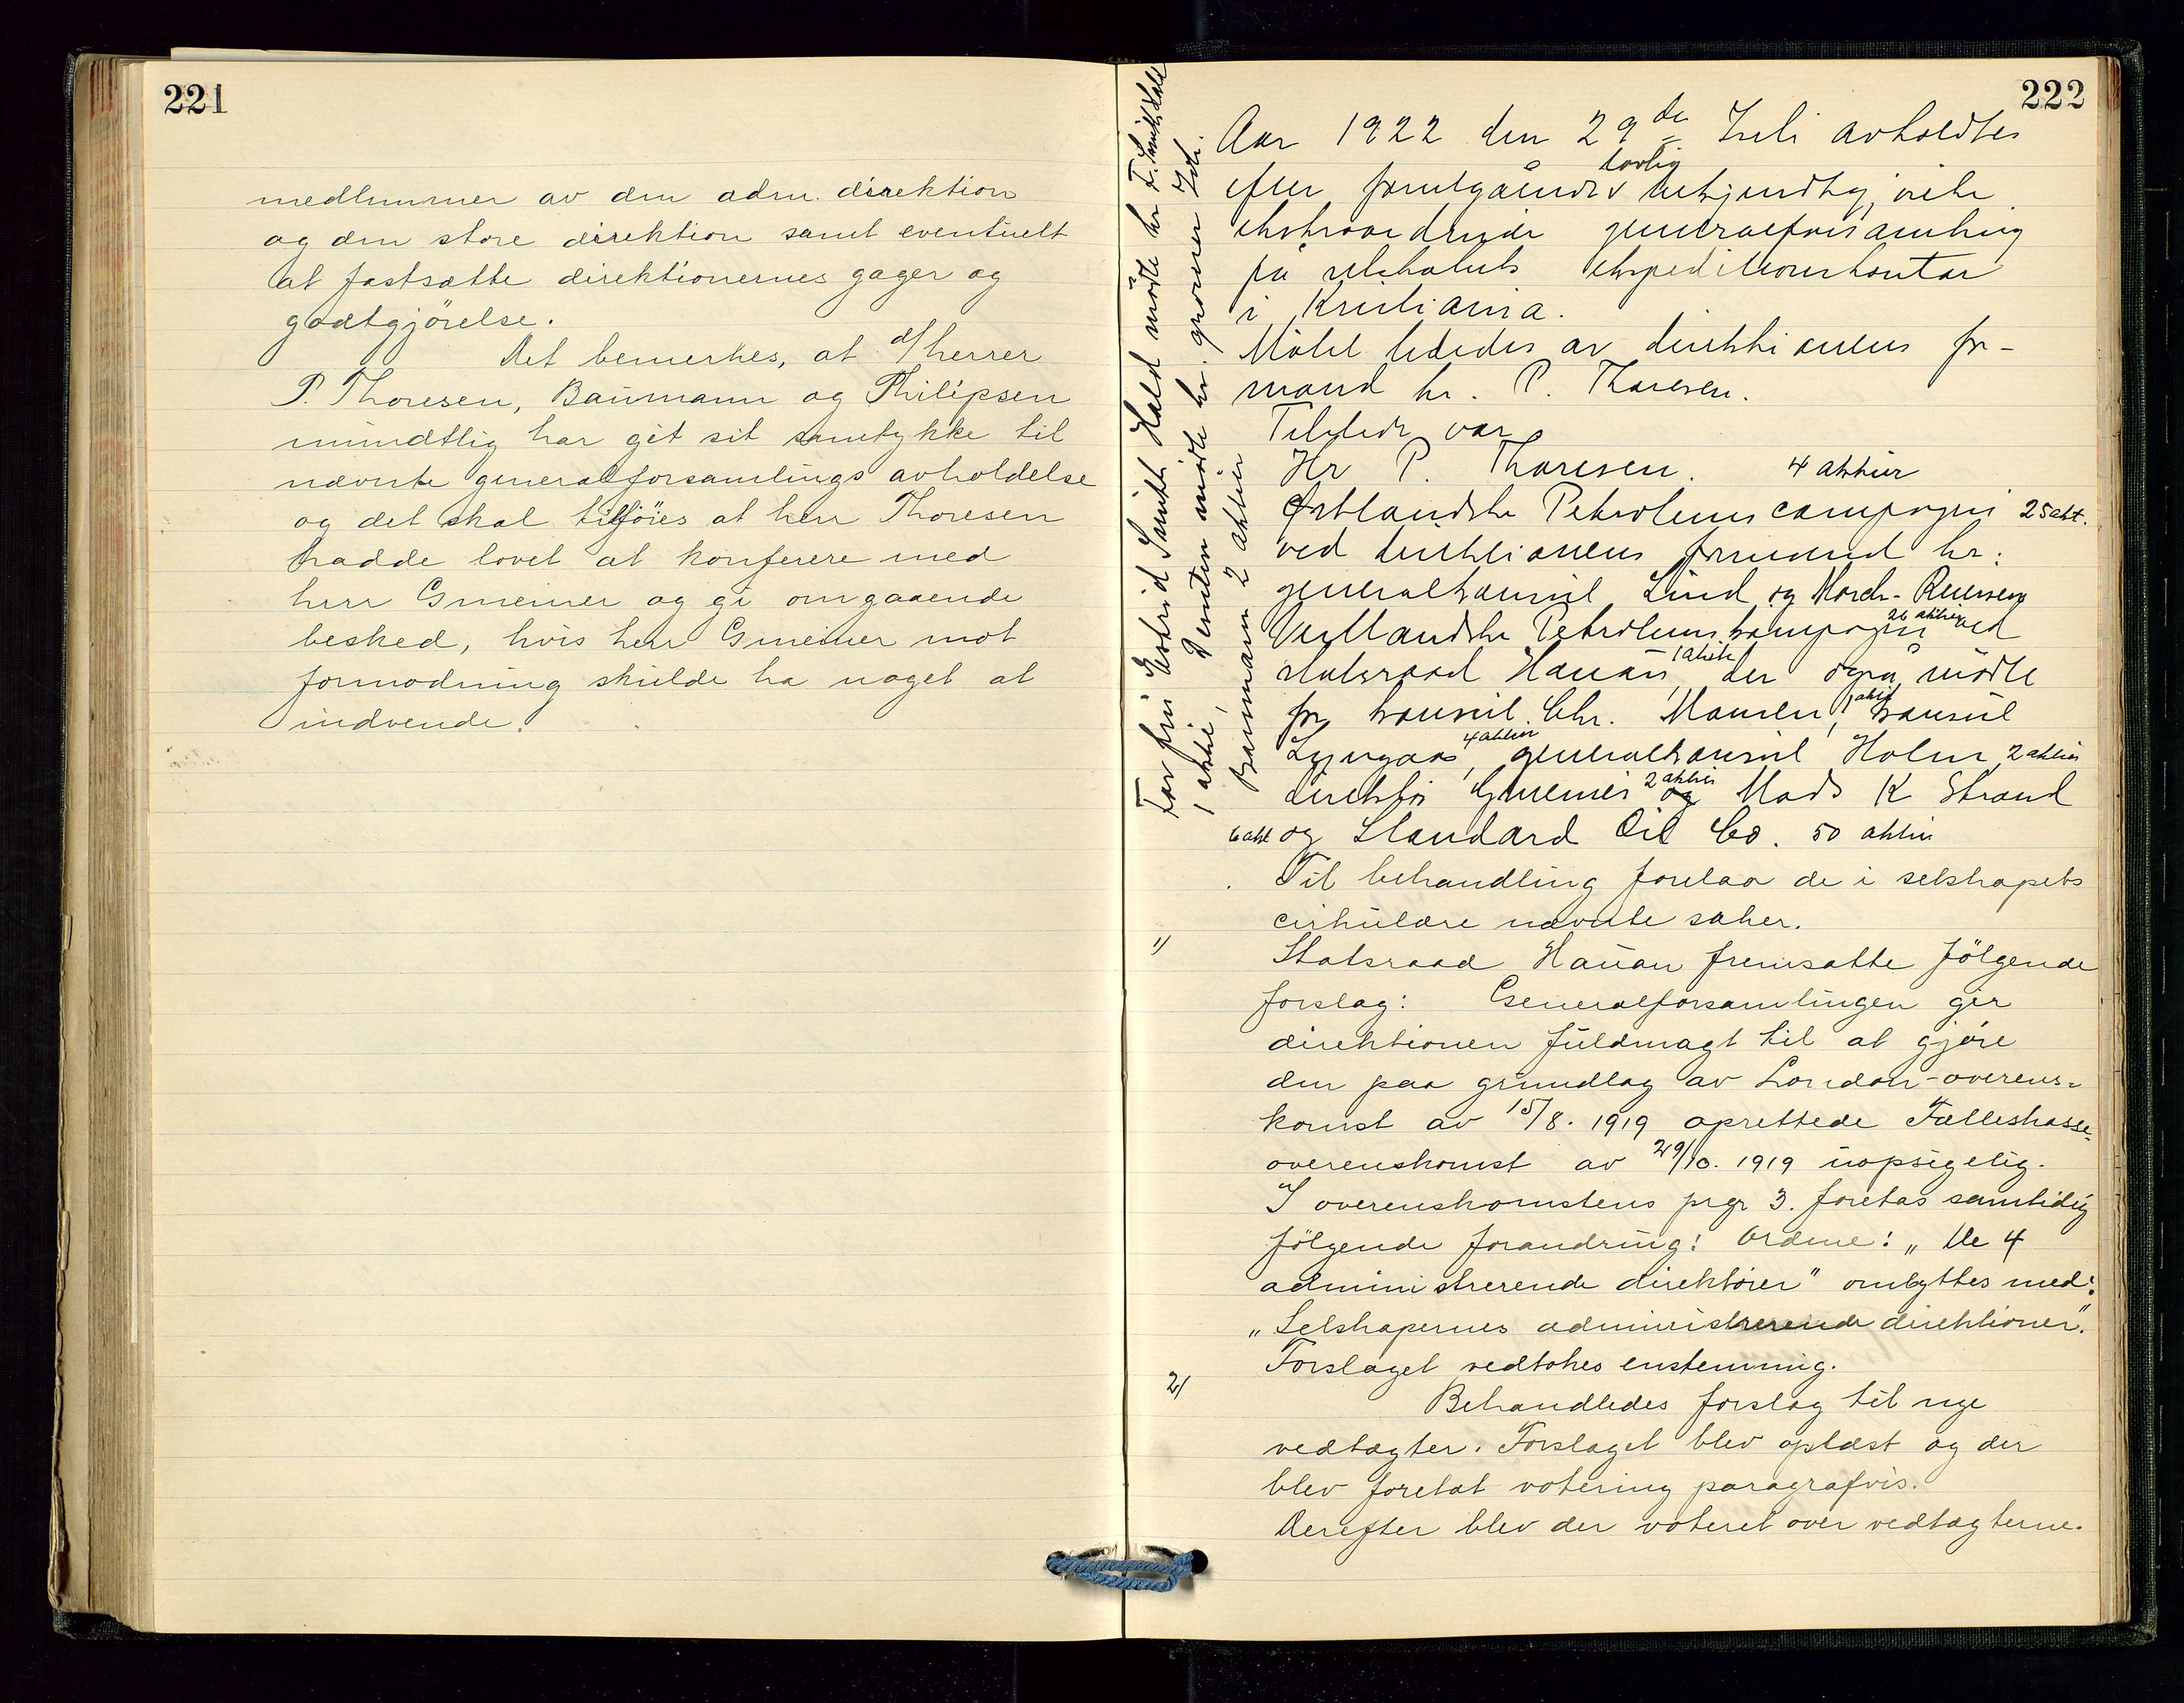 221
medlemmer av den adm. direktion
og den store direktion samt eventuelt
at fastsætte direktionernes gager og
godtgjörelse.
Det bemerkes, at d/herrer
P. Thoresen, Baumann og Philipsen
mundtlig har git sit samtykke til
nævnte generalforsamlings avholdelse
og det skal tilföies at herr Thoresen
hadde lovet at konferere med
herr Gmeiner og gi omgaaende
besked, hvis herr Gmeiner mot
formodning skulde ha noget at
indvende.
222
Aar 1922 den 29de Juli avholdtes
efter forutgående lovlig bekjendtgjörelse
ekstraordinær generalforsamling
på selskabets ekspeditionskontor
i Kristiania.
Mötet lededes av direktionens for-
mand hr. P. Thoresen.
Tilstede var
Hr P. Thoresen. 4 aktier
Østlandske Petroleumscompagni 25 akt.
ved direktionens formand hr.
generalkonsul Lund og Morch-Reiersen
Vestlandske Petroleumskompagni 26 aktier ved
statsraad Hauan, 1 aktie der også mötte
for konsul Chr. Mansen, 1 aktie konsul
Lyngaas, 4 aktier generalkonsul Holm, 2 aktier
direktör Gmeiner 2 aktier og Mads K Strand
6 akt og Standard Oil Co. 50 aktier
For fru Estrid Smith Hald mötte hr F. Smith Hald
1 aktie, mötte hr. groserer
Baumann 2 aktier
Til behandling forelaa de i selskapets
cirkulære nævnte saker.
1)
Statsraad Hauan fremsatte fölgende
forslag: Generalforsamlingen gir
direktionen fuldmagt til at gjöre
den paa grundlag av London-overens=
komst av 15/8. 1919 oprettede Fælleskasse=
overenskomst av 29/10. 1919 uopsigelig.
I overenskomstens prgr 3. foretas samtidig
fölgende forandring: Ordene: „De 4
administrerende direktörer" ombyttes med:
„Selskapernes administrerende direktioner".
Forslaget vedtokes enstemmig.
2)
Behandledes forslag til nye
vedtægter. Forslaget blev oplæst og der
blev foretat votering paragrafvis.
Derefter blev der voteret over vedtægterne.